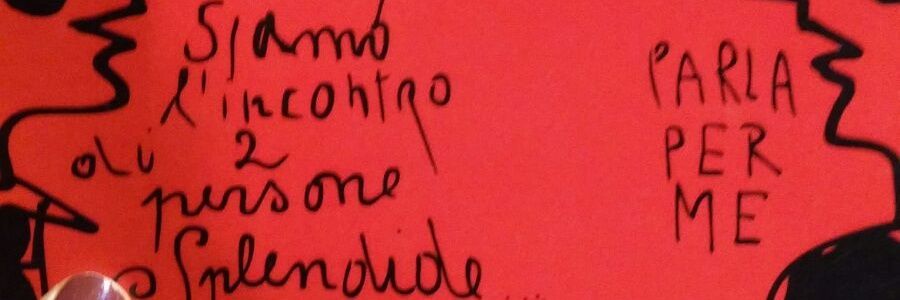 Siamo
l'incontro
di 2
persone
splendide...
PARLA
PER
ME